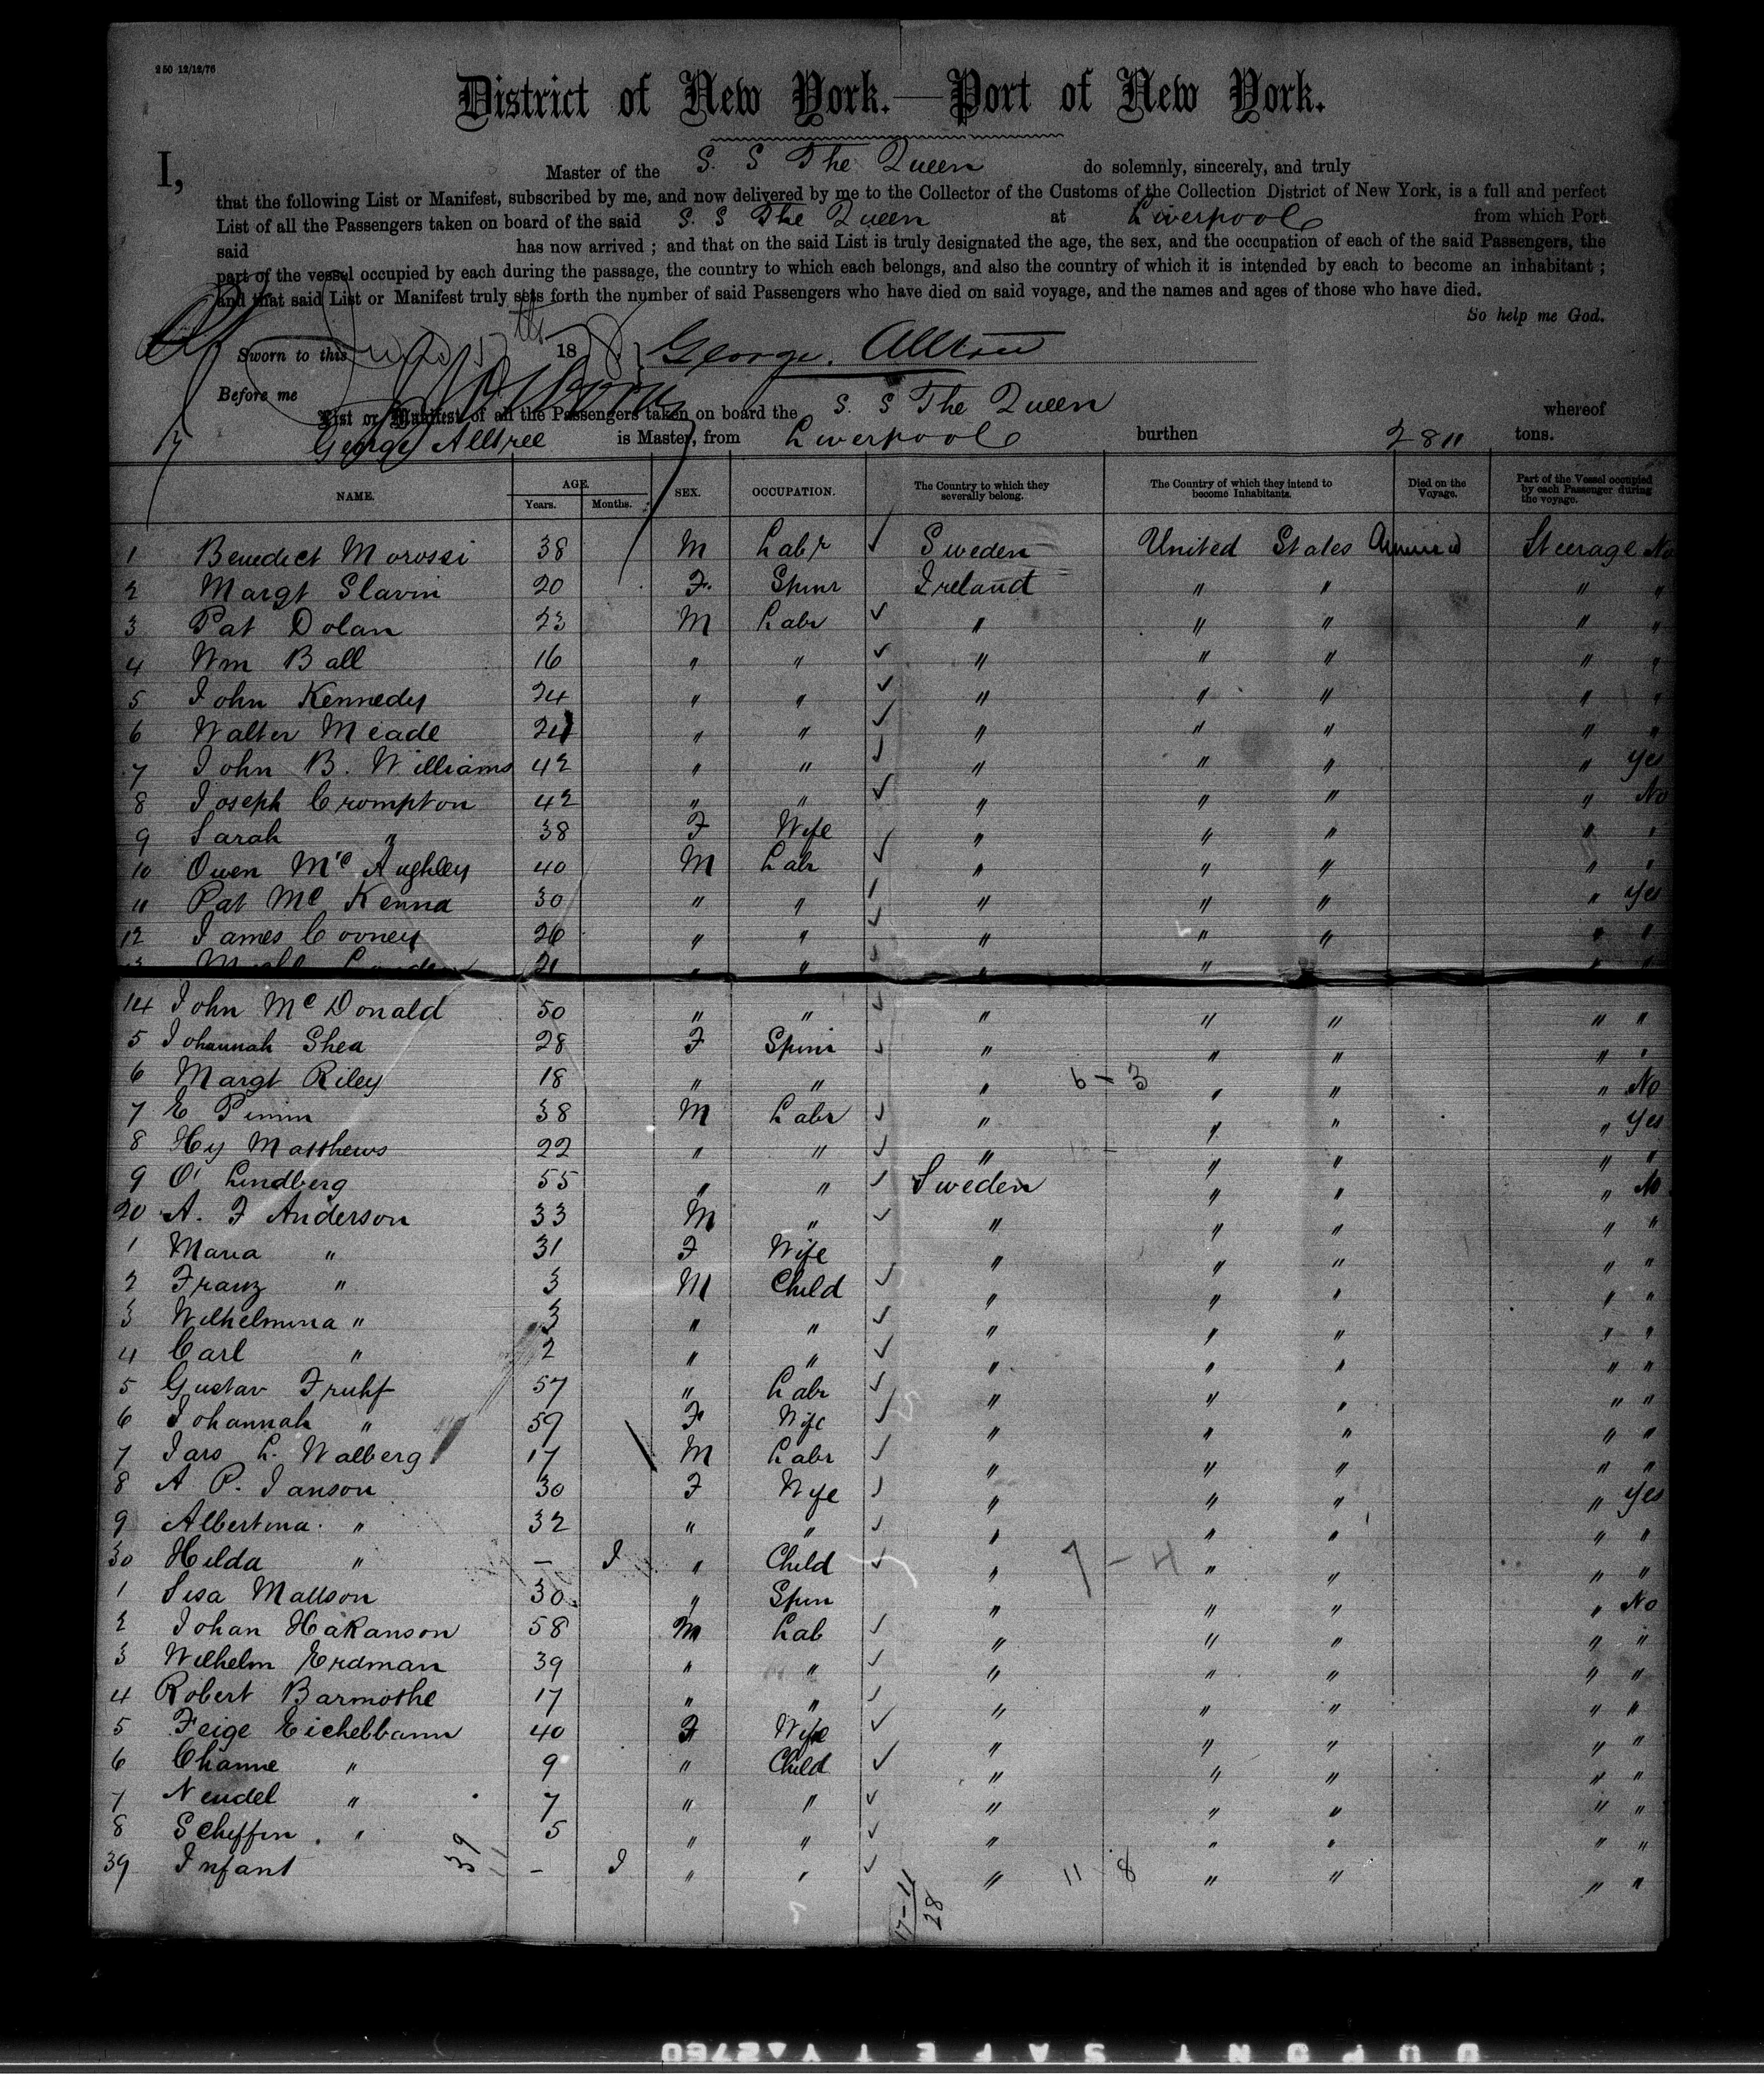 250 12/12/76
District of New York.—Port of New York.
I, Master of the S. S The Queen do solemnly, sincerely, and truly
that the following List or Manifest, subscribed by me, and now delivered by me to the Collector of the Customs of the Collection District of New York, is a full and perfect
List of all the Passengers taken on board of the said S. S The Queen at Liverpool from which Port
said has now arrived ; and that on the said List is truly designated the age, the sex, and the occupation of each of the said Passengers, the
part of the vessel occupied by each during the passage, the country to which each belongs, and also the country of which it is intended by each to become an inhabitant ;
and that said List or Manifest truly sets forth the number of said Passengers who have died on said voyage, and the names and ages of those who have died.
So help me God.
Sworn to this 18 George.
Before me
List or Manifest of all the Passengers taken on board the S. S The Queen whereof
George Alltree is Master, from Liverpool burthen tons.
NAME. AGE. SEX. OCCUPATION. The Country to which they severally belong. The Country of which they intend to become Inhabitants. Died on the Voyage. Part of the Vessel occupied by each Passenger during the voyage.
Years. Months.
1 Benedict Morossi 38 M Labr Sweden United States Steerage No
2 Margt Slavin 20 F. Spinr Ireland " " " "
3 Pat Dolan 23 M Labr " " " " "
4 Wm Ball 16 " " " " " " "
5 John Kennedy 24 " " " " " " "
6 Walter Meade " " " " " " "
7 John B. Williams 42 " " " " " " Yes
8 Joseph Crompton 42 " " " " " " No
9 Sarah " 38 F Wife " " " " "
10 Owen Mc Aughley 40 M Labr " " " " "
11 Pat Mc Kenna 30 " " " " " " Yes
12 James Cooney 26 " " " " " " "
21 " " " " " "
14 John Mc Donald 50 " " " " " " "
5 Johannah Shea 28 F Spinr " " " " "
6 Margt Riley 18 " " " 6-3 " " " No
7 E Pimm 38 M Labr " " " " Yes
8 Hy Matthews 22 " " " " " " "
9 O' Lindberg 55 " " Sweden " " " No
20 A. F Anderson 33 M " " " " " "
1 Maria " 31 F Wife " " " " "
2 Franz " 3 M Child " " " " "
3 Wilhelmina " 3 " " " " " " "
4 Carl " 2 " " " " " " "
5 Gustav Fruhf 57 " Labr " " " " "
6 Johannah " 59 F Wife " " " " "
7 Jars L. Walberg 17 M Labr " " " " "
8 A P. Janson 30 F Wife " " " " Yes
9 Albertina " 32 " " " " " " "
30 Hilda " - I " Child " 7-4 " " " "
1 Sisa Mattson 30 " Spin " " " " No
2 Johan Hakanson 58 M Lab " " " " "
3 Wilhelm Erdman 39 " " " " " " "
4 Robert Barmothe 17 " " " " " " "
5 Feige Eichelbbann 40 F Wife " " " " "
6 Channe " 9 " Child " " " " "
7 Neudel " 7 " " " " " " "
8 Scheffin " 5 " " " " " " "
39 Infant 39 - I " " " 11 8 " " " "
17-11
28
DUPONT SAFETY 2760